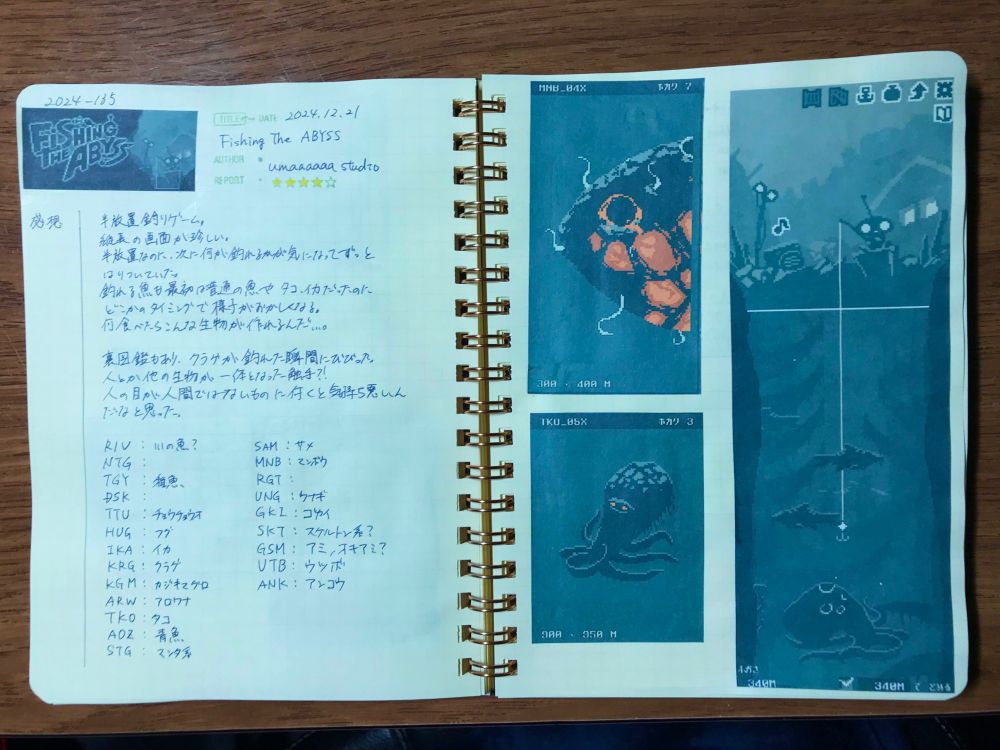 2024-135
FiSHING THE ABYSS
TITLE DATE 2024.12.21
Fishing The ABYSS
AUTHOR umaaaaaa studio
REPORT ★★★★☆
感想
半放置釣りゲーム。
縦長の画面が珍しい。
半放置なのに、次に何が釣れるかが気になってずっと
はりついていた。
釣れる魚も最初は普通の魚や タコ、イカだったのに
どこかのタイミングで様子がおかしくなる。
何食べたらこんな生物が作れるんだ…。
裏図鑑もあり、クラゲが釣れた瞬間にびびった。
人とか他の生物が一体となった触手?!
人の目が人間ではないものに付くと気持ち悪いん
だなと思った。
RIV : 川の魚?
NTG :
TGY : 稚魚
DSK :
TTU : チョウチョウオ
HUG : フグ
IKA : イカ
KRG : クラゲ
KGM : カジキマグロ
ARW : アロワナ
TKO : タコ
AOZ : 青魚
STG : マンタ系
SAM : サメ
MNB : マンボウ
RGT :
UNG : ウナギ
GKI : ゴカイ
SKT : スケルトン系?
GSM : アミ, オキアミ?
UTB : ウツボ
ANK : アンコウ
MNB_04X
ヒカリ 7
300 - 400 M
TKO_05X
ヒカリ 3
300 - 350 M
340M
340M で とめる